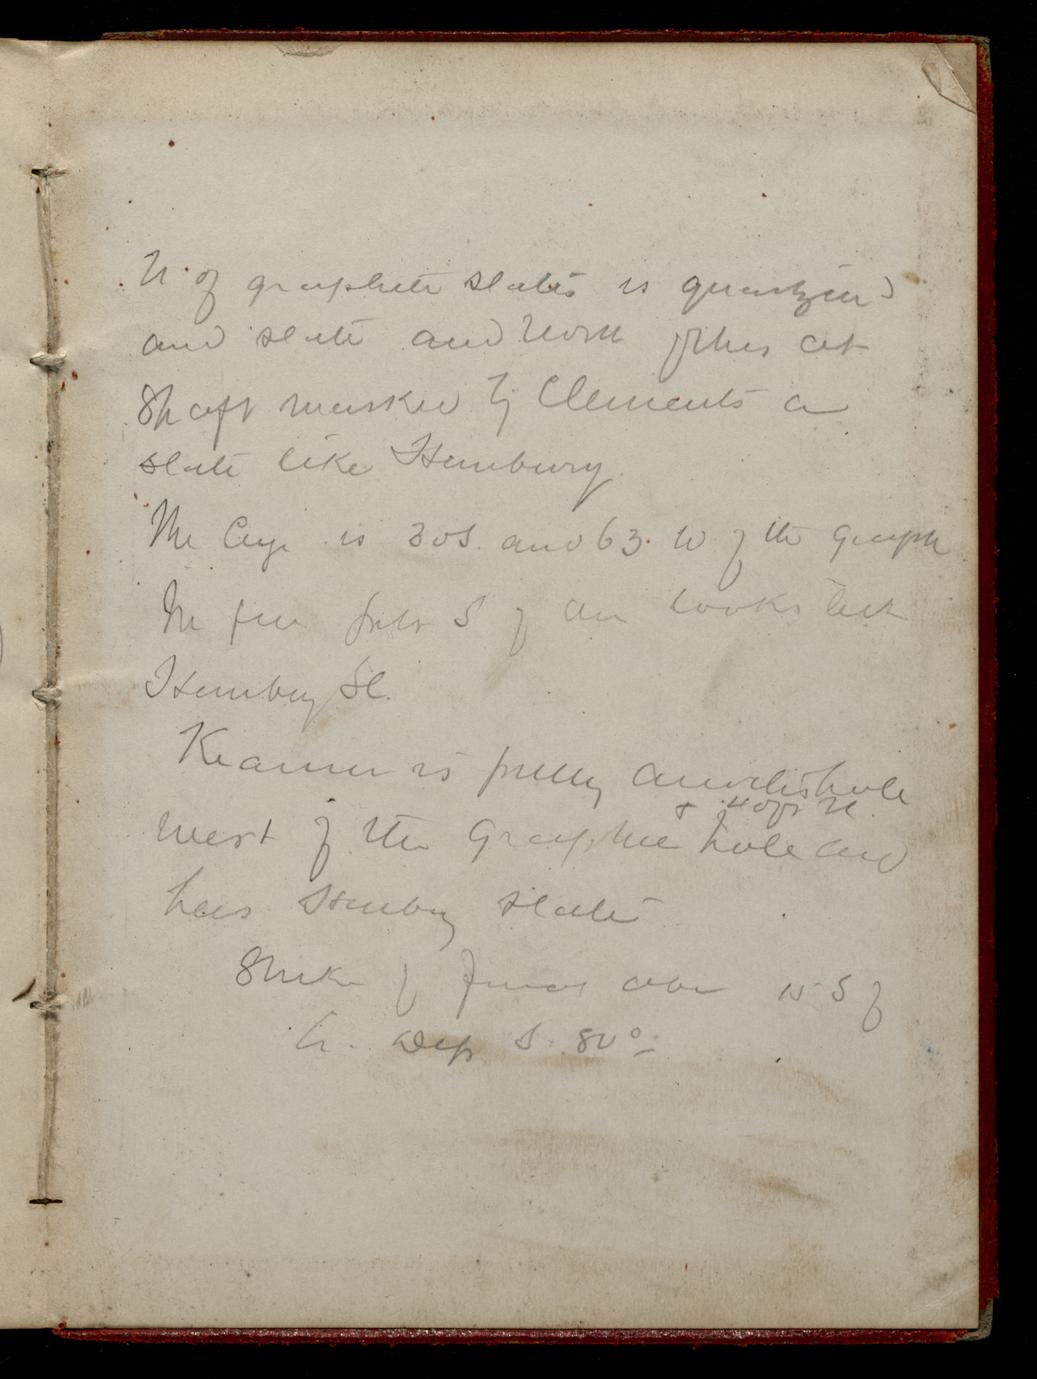 N. of graphite slates is quartzite
and slate and North of this at
Shaft marked by Clements a
slate like Hembury
The is 30 S. and 63. W of the Graph
The few S of an looks like
Hembury Sl.
is pretty hole
+ 40 ft N.
West of the Graphite hole and
has Hembury slates
Strike of N S of
Dip S. 80°